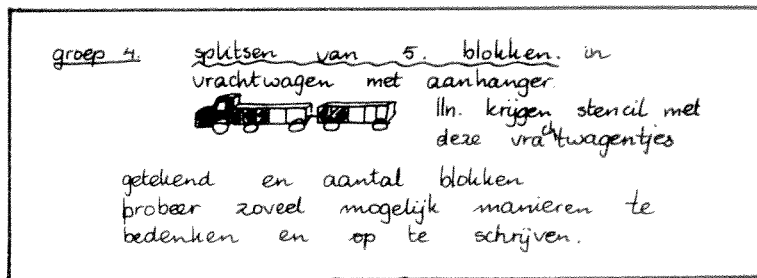 groep 4. splitsen van 5. blokken. in
vrachtwagen met aanhanger.
lln. krijgen stencil met
deze vrachtwagentjes
getekend en aantal blokken
probeer zoveel mogelijk manieren te
bedenken en op te schrijven.